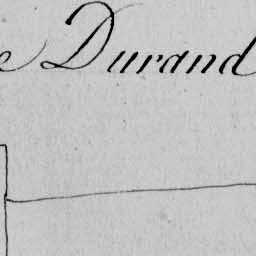 e Durand